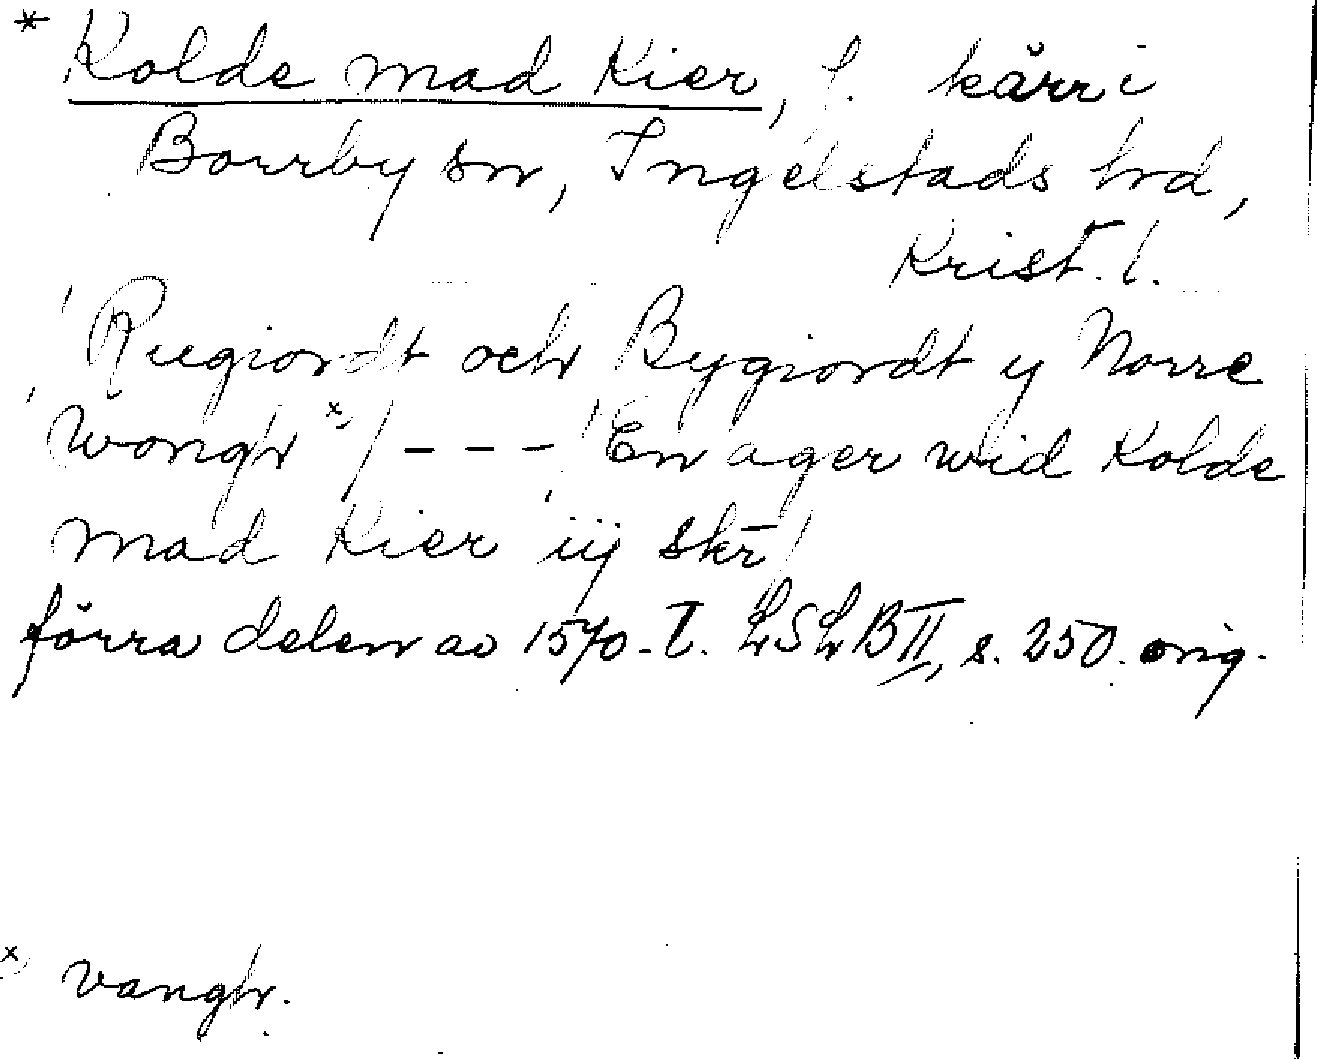 * Kolde mad Kier, f. kärr i
Borrby sn, Ingelstads hrd,
Krist. l.
/Rugiordt och Bygiordt y Norre
Wongh x) / - - - /En ager wid Kolde
mad Kier iij skr̄/
förra delen av 1570-t. LSLB II, s. 250. orig.
x) vangh.